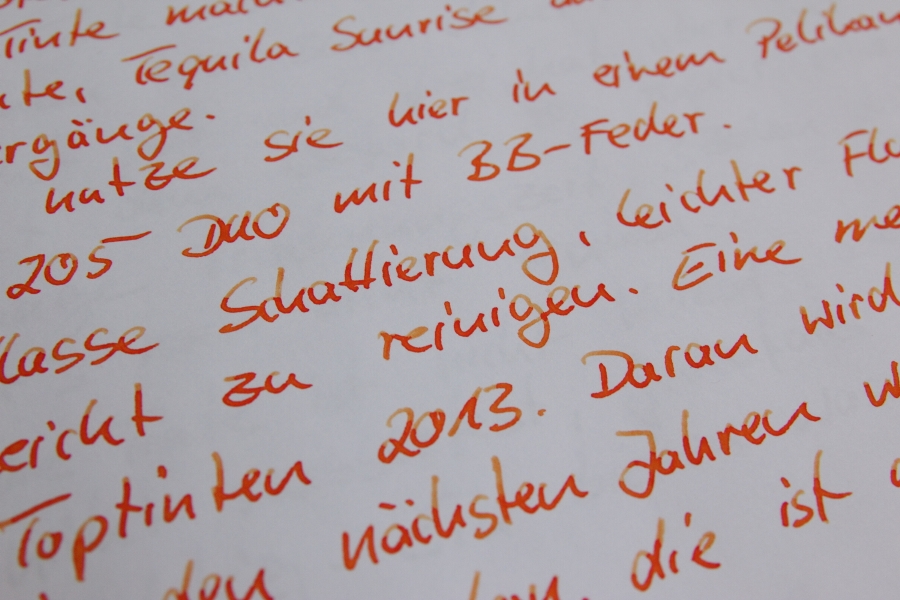 Tinte
Tequila Sunrise
rgänge.
nutze sie hier in einem Pelikan
205 DUO mit BB-Feder.
lasse Schattierung, leichter Flu
eicht zu reinigen. Eine me
Toptinten 2013. Daran wird
den nächsten Jahren w
die ist